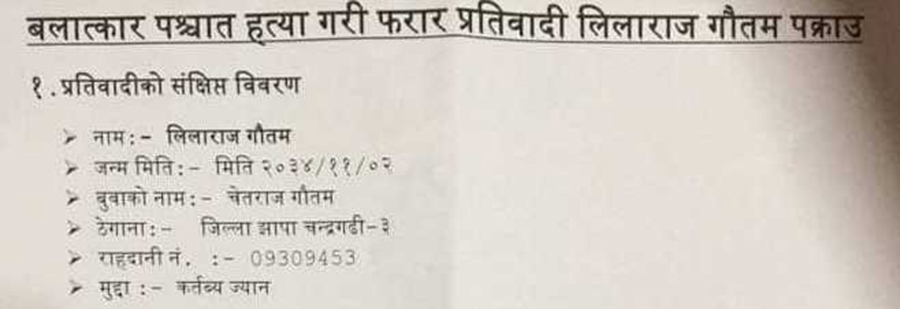 बलात्कार पश्चात हत्या गरी फरार प्रतिवादी लिलाराज गौतम पक्राउ
१.प्रतिवादीको संक्षिप्त विवरण
➢ नाम:- लिलाराज गौतम
➢ जन्म मिति:- मिति २०३४/११/०२
➢ बुवाको नाम:- चेतराज गौतम
➢ ठेगाना:- जिल्ला झापा चन्द्रगढी-३
➢ राहदानी नं. :- 09309453
➢ मुद्दा :- कर्तब्य ज्यान